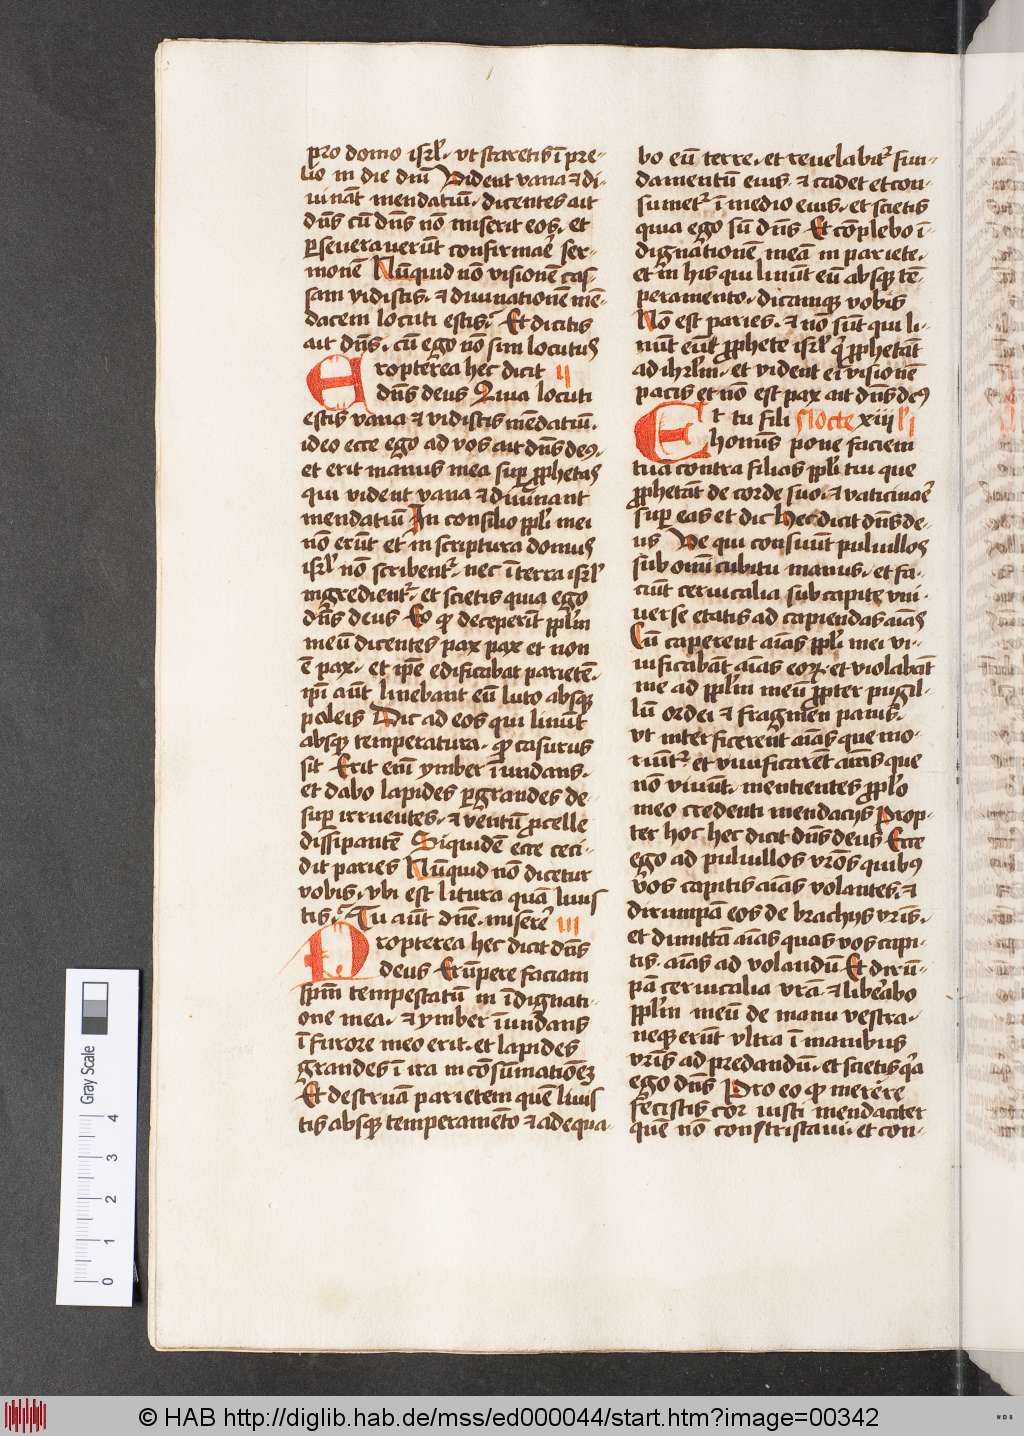 pro domo isrl̅. vt staretis ī pre-
lio in die dn̅i Vident vana ⁊ di-
uināt mendatiū. dicentes ait
dn̅s cū dn̅s nō miserit eos. et
ꝑseuerauerūt confirmar̄e ser-
monē Nūquid nō visionē cas-
sam vidistis. ⁊ diuinationē mē-
dacem locuti estis. Et dicitis
ait dn̅s. cū ego nō sim locutus
Propterea hec dicit II
dn̅s deus Quia locuti
estis vana ⁊ vidistis mēdatiū.
ideo ecce ego ad vos ait dn̅s deꝰ.
et erit manus mea suꝑ ꝓphetas
qui vident vana ⁊ diuinant
mendatiū In consilio ppl̅i mei
nō erūt et in scriptura domus
isrl̅ nō scribentr̄. nec ī terra isrl̅
ingredientr̄. et scietis quia ego
dn̅s deus Eo ꝙ deceperīt ppl̅m
meū dicentes pax pax et non
ē pax. et ip̄e edificabat parietē.
ip̄i aūt linebant eū luto absqꝫ
paleis Dic ad eos qui linūt
absqꝫ temperatura. ꝙ casurus
sit Erit enī ymber īundans.
et dabo lapides ꝑgrandes de-
suꝑ irruentes. ⁊ ventū ꝓcelle
dissipantē Siquidē ecce ceci-
dit paries Nūquid nō dicetur
vobis. vbi est litura quā linis
tis. Tu aūt dn̅e. miserer̄e III
Propterea hec dicit dn̅s
deus Erūpere faciam
spm̄ tempestatū in īdignati-
one mea. ⁊ ymber īundans
ī furore meo erit. et lapides
grandes ī ira in cōsūmationēꝫ
Et destruā parietem quē linis
tis absqꝫ temperamēto ⁊ adequa-
bo eū terre. et reuelabitr̄ fun-
damentū eius. ⁊ cadet et con-
sumetr̄ ī medio eius. et scietis
quia ego sū dn̅s Et cōplebo ī-
dignationē meā in pariete.
et in his qui linūt eū absqꝫ tē-
peramento. dicamqꝫ vobis
Nō est paries. ⁊ nō sūt qui li-
nūt eūt ꝓphete isrl̅ qͥ ꝓphetāt
ad ihrl̅m. et vident ei visionē
pacis et nō est pax ait dn̅s deꝰ
Et tu fili Nocte xiii l'i
hominis pone faciem
tuā contra filias ppl̅i tui que
ꝓphetāt de corde suo. ⁊ vaticinar̄e
suꝑ eas et dic Hec dicit dn̅s de-
us Ve qui consuūt puluillos
sub omī cubitu manus. et fa-
ciūt ceruicalia sub capite vni-
uerse etatis ad capiendas aīas
Cū caperent aīas ppl̅i mei vi-
uificabāt aīas eoꝝ. et violabāt
me ad ppl̅m meū ꝓpter pugil-
lū ordei ⁊ fragmen panis.
vt interficerēt aīas que mo-
riūtr̄ et viuificarēt aīas que
nō viuūt. mentientes ppl̅o
meo credenti mendacijs Prop-
ter hoc hec dicit dn̅s deus Ecce
ego ad puluillos vr̄os quibꝰ
vos capitis aīas volantes. ⁊
dirumpā eos de brachijs vr̄is.
et dimittā aīas quas vos capi-
tis. aīas ad volandū Et dirū-
pā ceruicalia vr̄a ⁊ liberabo
ppl̅m meū de manu vestra.
neqꝫ erūt vltra ī manibus
vr̄is ad predandū. et scietis qͥa
ego dn̅s Pro eo ꝙ merere
fecistis cor iusti mendaciter
quē nō constristaui. et con-
Gray Scale
0 1 2 3 4
© HAB http://diglib.hab.de/mss/ed000044/start.htm?image=00342